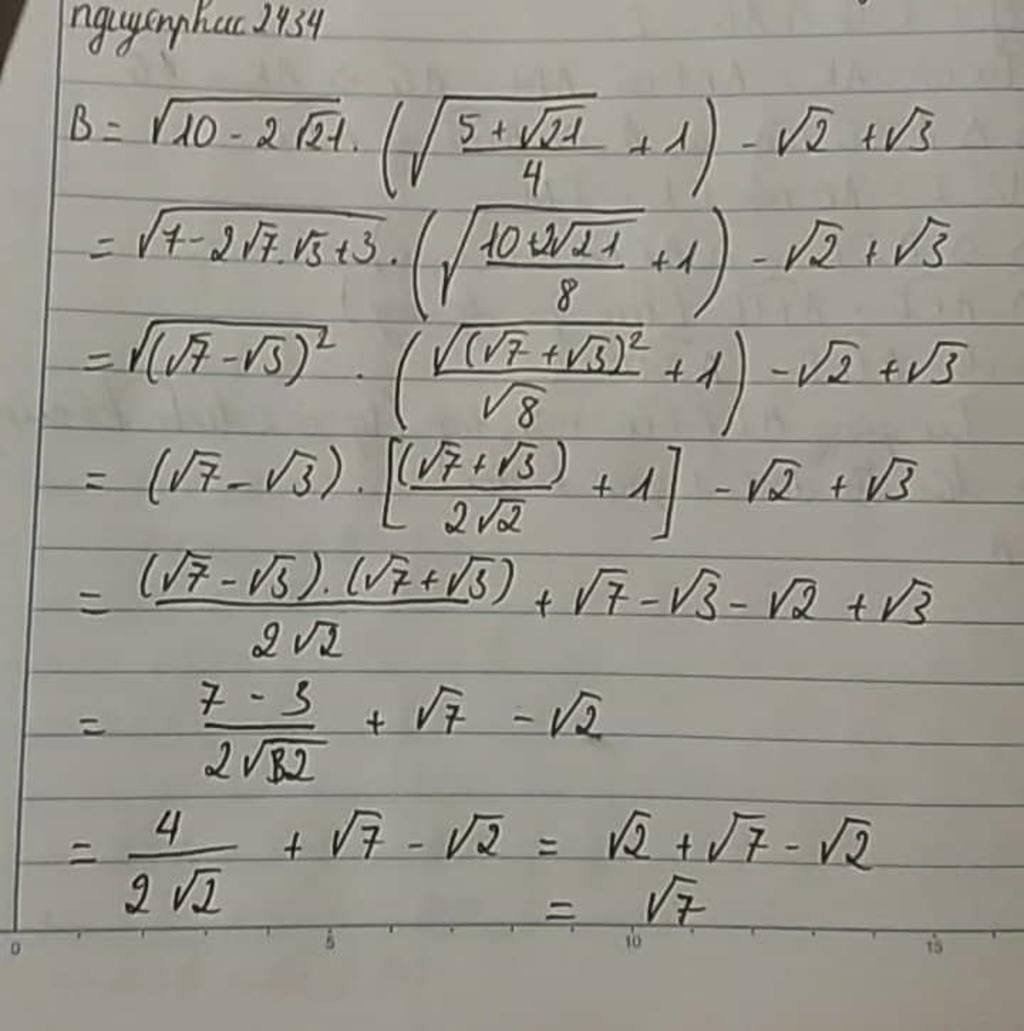 nguyenphuc2434
B = √(10 - 2√21) . (√((5 + √21)/4) + 1) - √2 + √3
= √(7 - 2√7.√3 + 3) . (√((10+2√21)/8) + 1) - √2 + √3
= √((√7 - √3)²) . (√((√7 + √3)²)/√8 + 1) - √2 + √3
= (√7 - √3) . [(√7 + √3)/(2√2) + 1] - √2 + √3
= (√7 - √3).(√7 + √3)/(2√2) + √7 - √3 - √2 + √3
= (7 - 3)/(2√2) + √7 - √2
= 4/(2√2) + √7 - √2 = √2 + √7 - √2
= √7
0 5 10 15